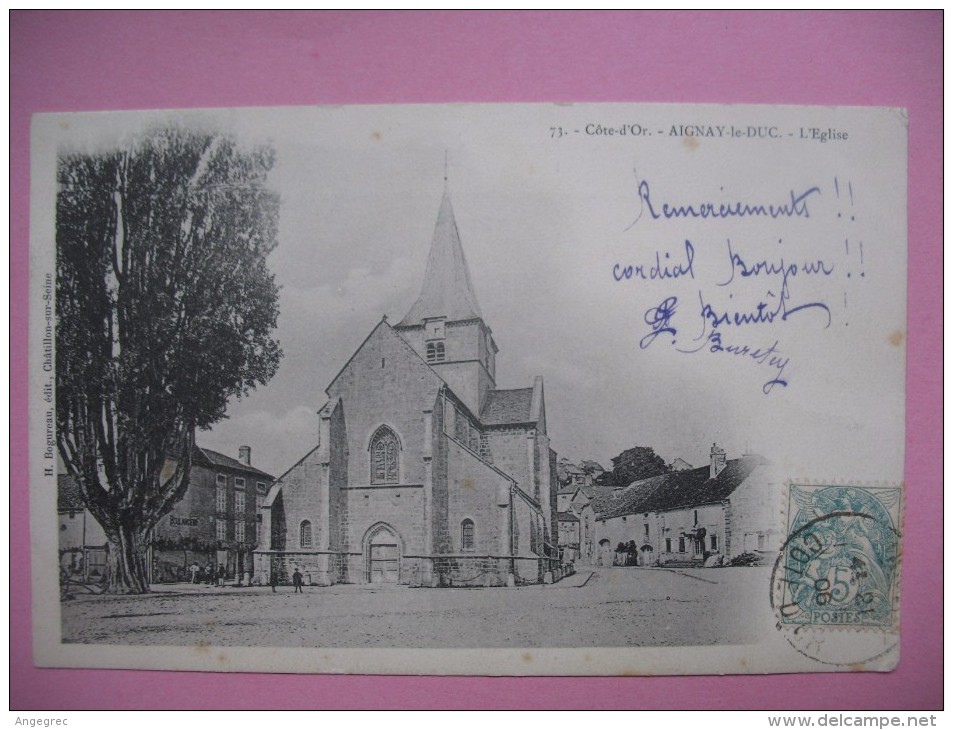 73. - Côte-d'Or. - AIGNAY-le-DUC. - L'Eglise
Remerciements !!
cordial Bonjour !!
Bientôt !
H. Bogureau, édit., Châtillon-sur-Seine
COTE
06
5
POSTES
Angegrec
http://www.delcampe.net